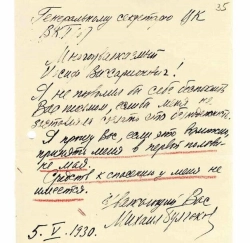 35
Генеральному секретарю ЦК
ВКП(б)
Многоуважаемый
Иосиф Виссарионович!
Я не позволил бы себе беспокоить
Вас письмом, если бы меня не
заставляла сделать это бедность.
Я прошу Вас, если это возможно,
принять меня в первой полови-
не мая.
Средств к спасению у меня не
имеется.
Уважающий Вас
Михаил Булгаков
5.V.1930.